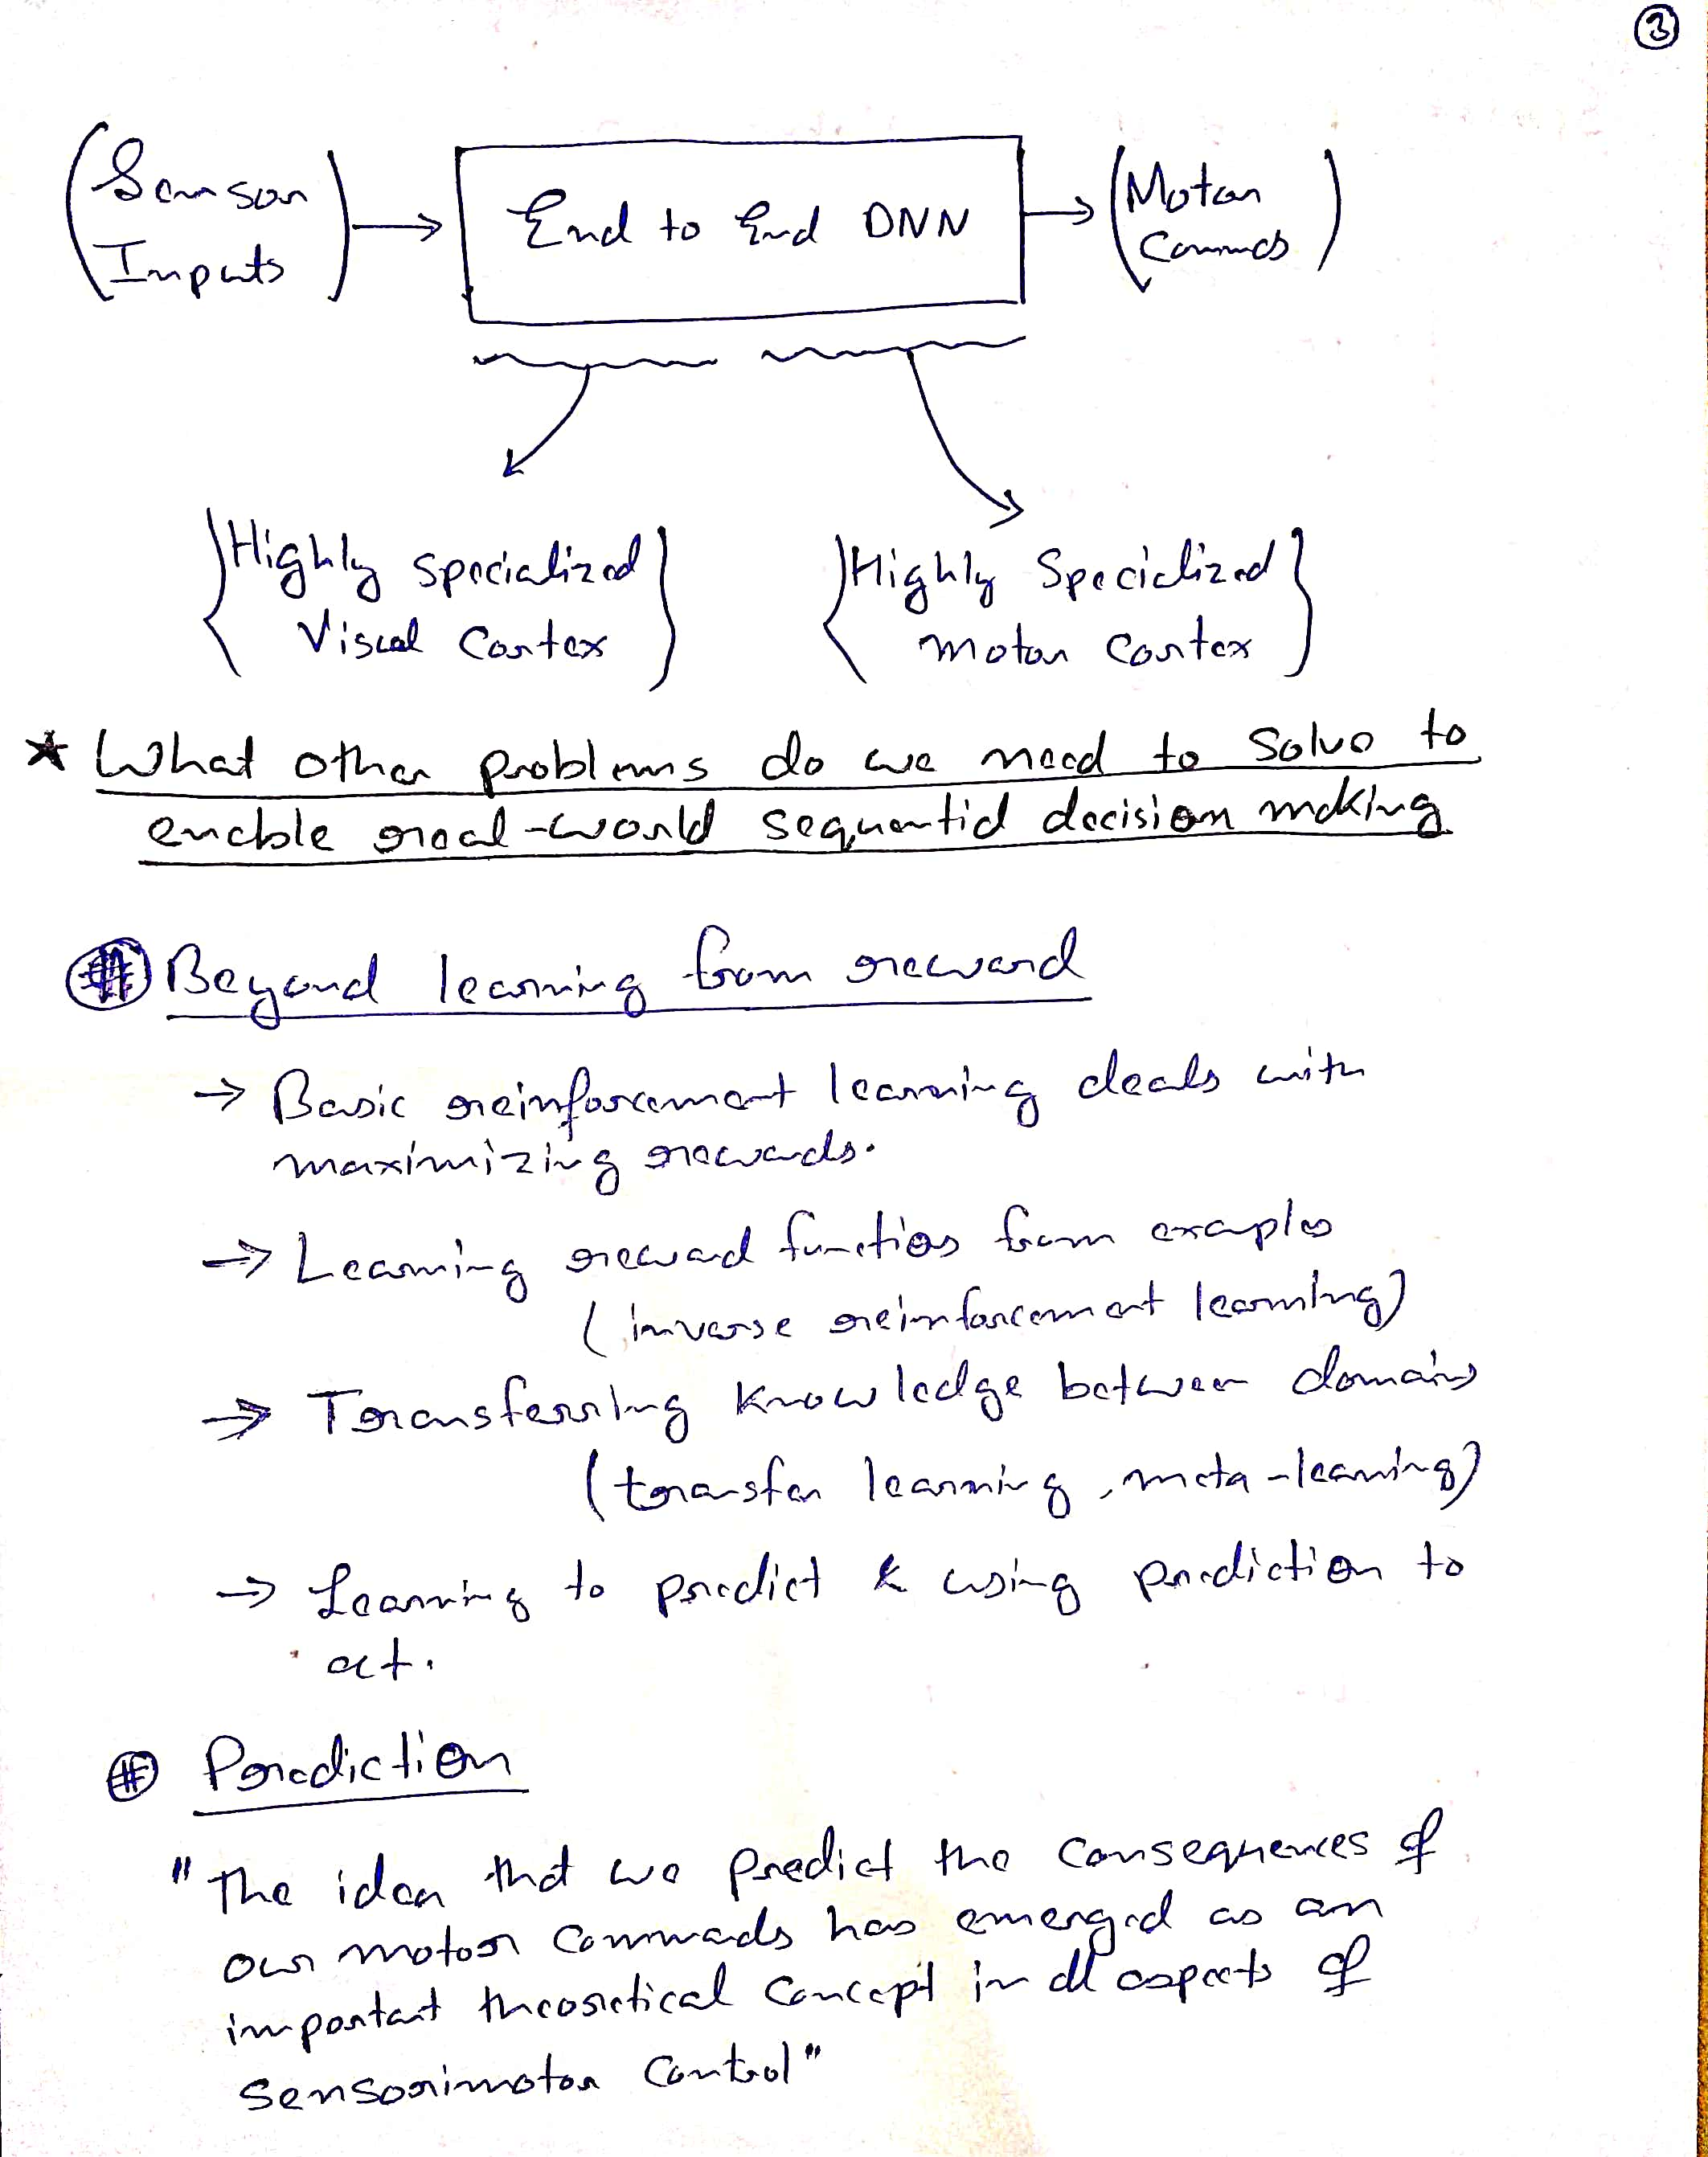 3
Sensor
Inputs
End to End DNN
Motor
Commds
Highly specialized
Visual Cortex
Highly Specialized
motor Cortex
* What other problems do we need to solve to
enable real-world sequential decision making
# Beyond learning from reward
→ Basic reinforcement learning deals with
maximizing rewards.
→ Learning reward functions from examples
(inverse reinforcement learning)
→ Transferring knowledge between domains
(transfer learning, meta-learning)
→ Learning to predict & using prediction to
act.
# Prediction
"The idea that we predict the consequences of
our motor commads has emerged as an
important theoretical concept in all aspects of
sensorimotor control"